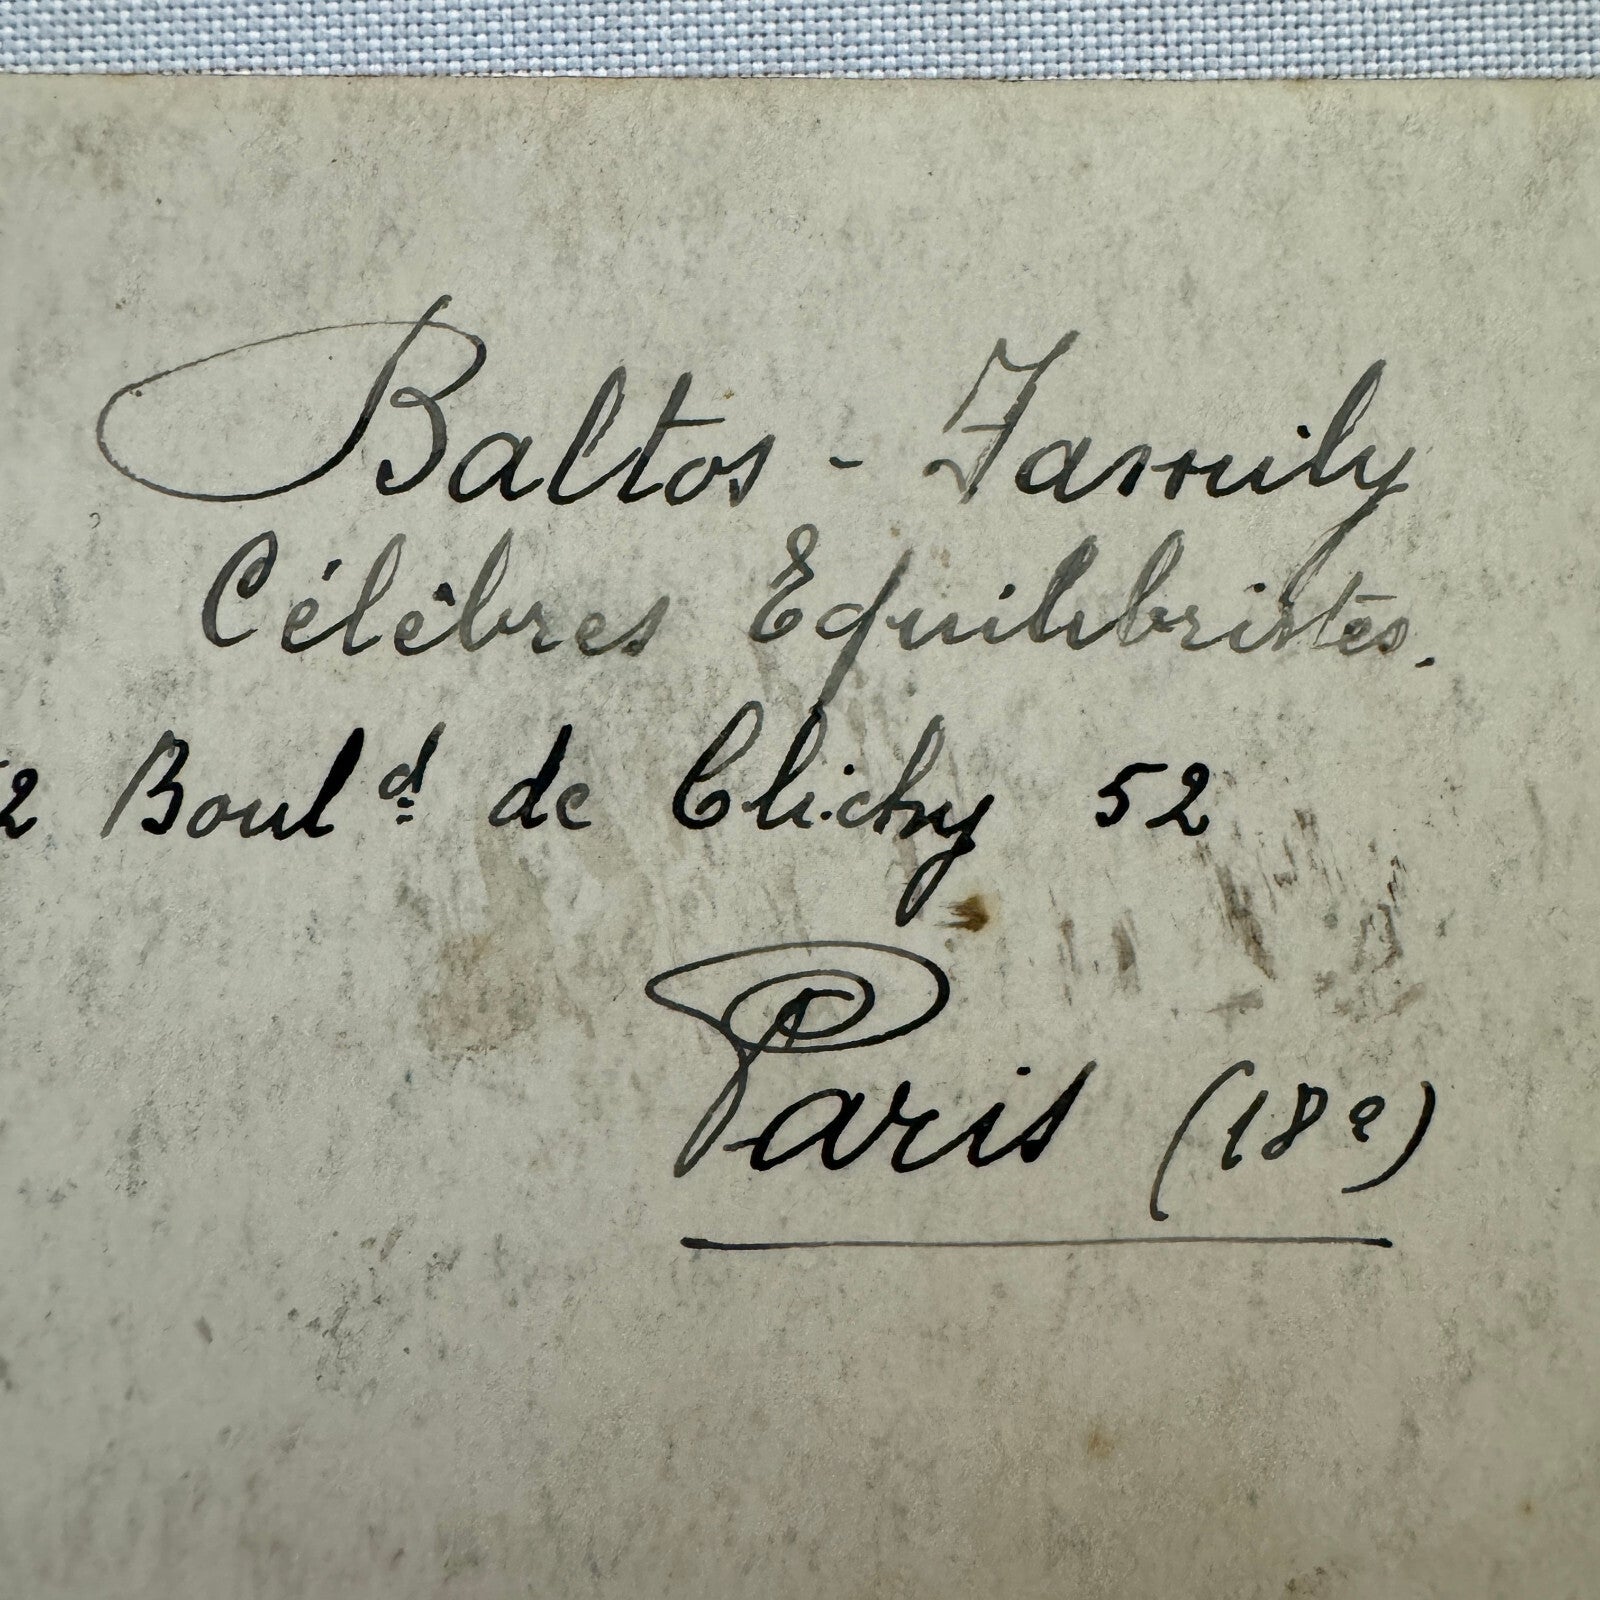 Baltos - Family
Célèbres Equilibristes.
2 Boulᵈ de Clichy 52
Paris (18ᵉ)